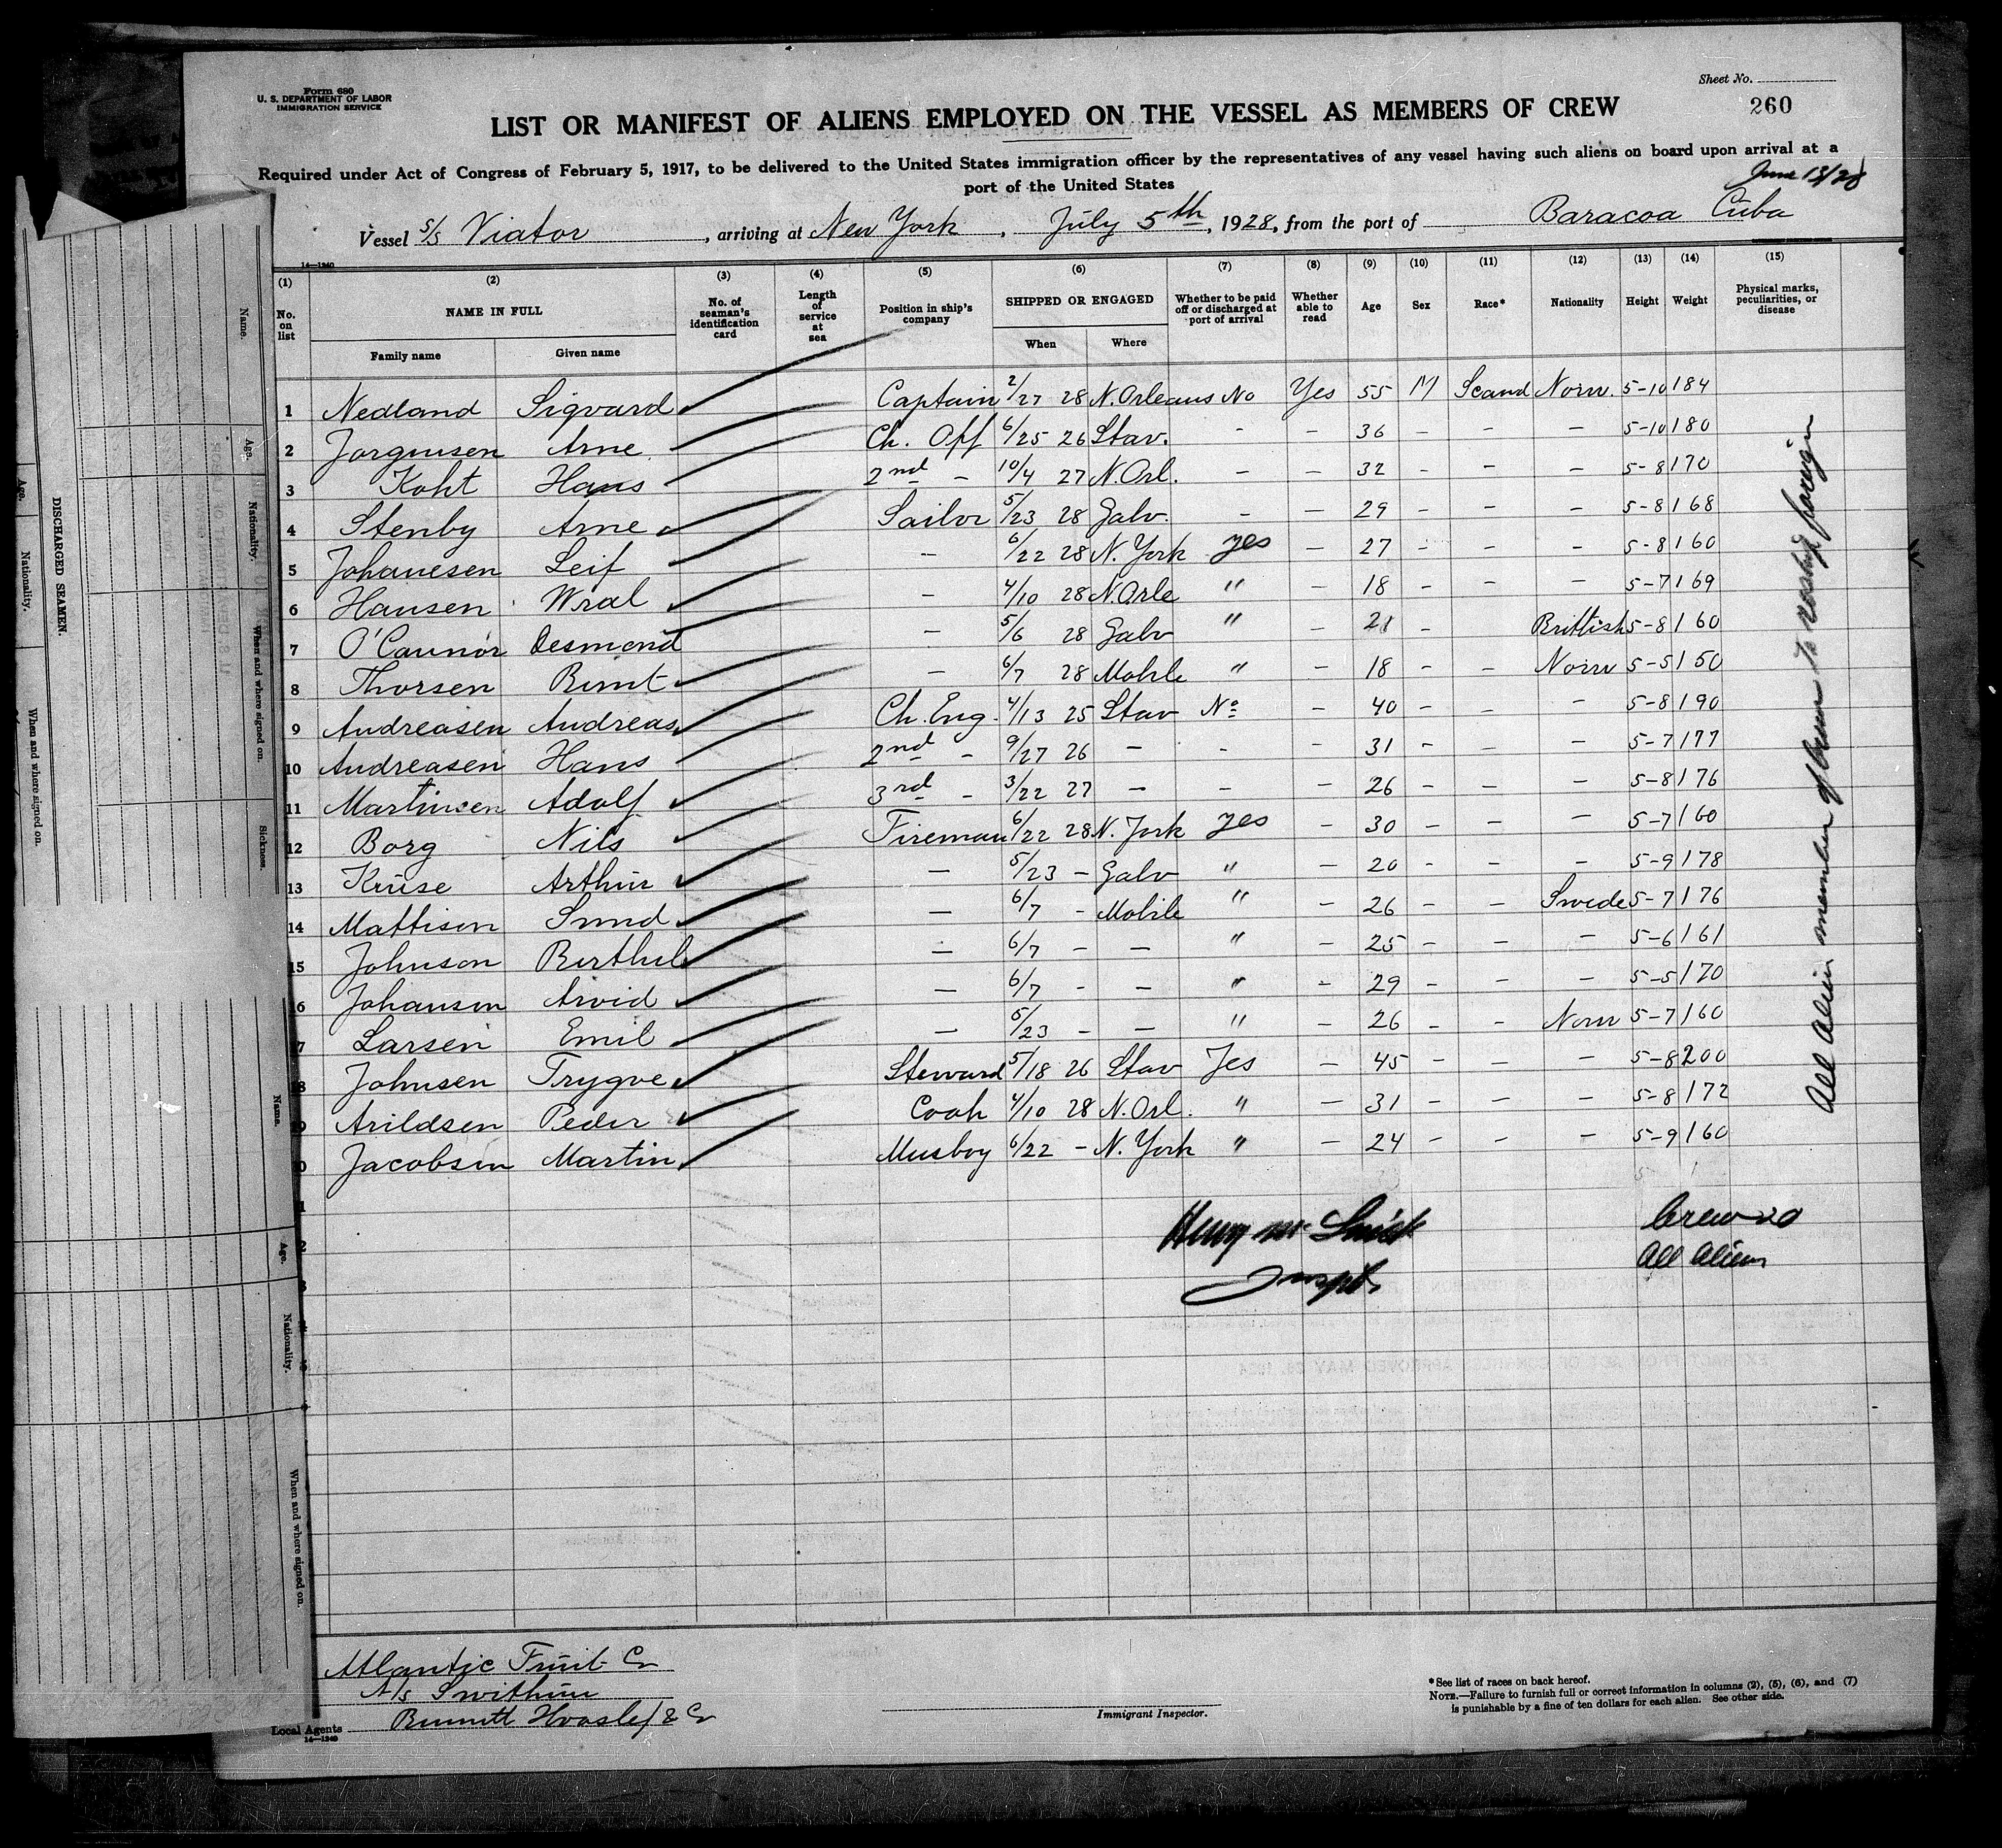 Form 680
U. S. DEPARTMENT OF LABOR
IMMIGRATION SERVICE
Sheet No.
260
LIST OR MANIFEST OF ALIENS EMPLOYED ON THE VESSEL AS MEMBERS OF CREW
Required under Act of Congress of February 5, 1917, to be delivered to the United States immigration officer by the representatives of any vessel having such aliens on board upon arrival at a
port of the United States
June 13/28
Vessel S/S Viator, arriving at New York, July 5th, 1928, from the port of Baracoa Cuba
14-1240
(1) (2) (3) (4) (5) (6) (7) (8) (9) (10) (11) (12) (13) (14) (15)
No. on list
NAME IN FULL
Family name Given name
No. of seaman's identification card
Length of service at sea
Position in ship's company
SHIPPED OR ENGAGED
When Where
Whether to be paid off or discharged at port of arrival
Whether able to read
Age
Sex
Race*
Nationality
Height
Weight
Physical marks, peculiarities, or disease
1 Nedland Sigvard Captain 2/27 28 N. Orleans No Yes 55 M Scand Norw. 5-10 184
2 Jorgensen Arne Ch. Off 6/25 26 Stav. - - 36 - - - 5-10 180
3 Koht Hans 2nd - 10/4 27 N. Orl. - - 32 - - - 5-8 170
4 Stenby Arne Sailor 5/23 28 Galv. - - 29 - - - 5-8 168
5 Johanesen Leif - 6/22 28 N. York yes - 27 - - - 5-8 160
6 Hansen Wral - 4/10 28 N. Orle " - 18 - - - 5-7 169
7 O'Connor Desmond - 5/6 28 Galv " - 21 - Brittish 5-8 160
8 Thorsen Bernt - 6/7 28 Mobile " - 18 - - Norw 5-5 150
9 Andreasen Andreas Ch. Eng. 4/13 25 Stav No - 40 - - - 5-8 190
10 Andreasen Hans 2nd - 9/27 26 - - - 31 - - - 5-7 177
11 Martinsen Adolf 3rd - 3/22 27 - - - 26 - - - 5-8 176
12 Borg Nils Fireman 6/22 28 N. York yes - 30 - - - 5-7 160
13 Kruse Arthur - 5/23 - Galv " - 20 - - - 5-9 178
14 Mattison Svend - 6/7 - Mobile " - 26 - - Swede 5-7 176
15 Johnson Berthil - 6/7 - - " - 25 - - - 5-6 161
16 Johanson Arvid - 6/7 - - " - 29 - - - 5-5 170
17 Larsen Emil - 5/23 - - " - 26 - - Norw 5-7 160
18 Johnsen Trygve Steward 5/18 26 Stav Yes - 45 - - - 5-8 200
19 Arildsen Peder Cook 4/10 28 N. Orl. " - 31 - - - 5-8 172
20 Jacobsen Martin Messboy 6/22 - N. York " - 24 - - - 5-9 160
All Alien members of crew to reship foreign
Crew 20
All Aliens
Atlantic Fruit Co
A/S Swithun
Local Agents Bennett & Co
14-1240
Immigrant Inspector.
*See list of races on back hereof.
NOTE.—Failure to furnish full or correct information in columns (2), (5), (6), and (7)
is punishable by a fine of ten dollars for each alien. See other side.
DISCHARGED SEAMEN.
Name.
Age.
Nationality.
When and where signed on.
Sickness.
Name.
Age.
Nationality.
When and where signed on.
Age.
Nationality.
When and where signed on.